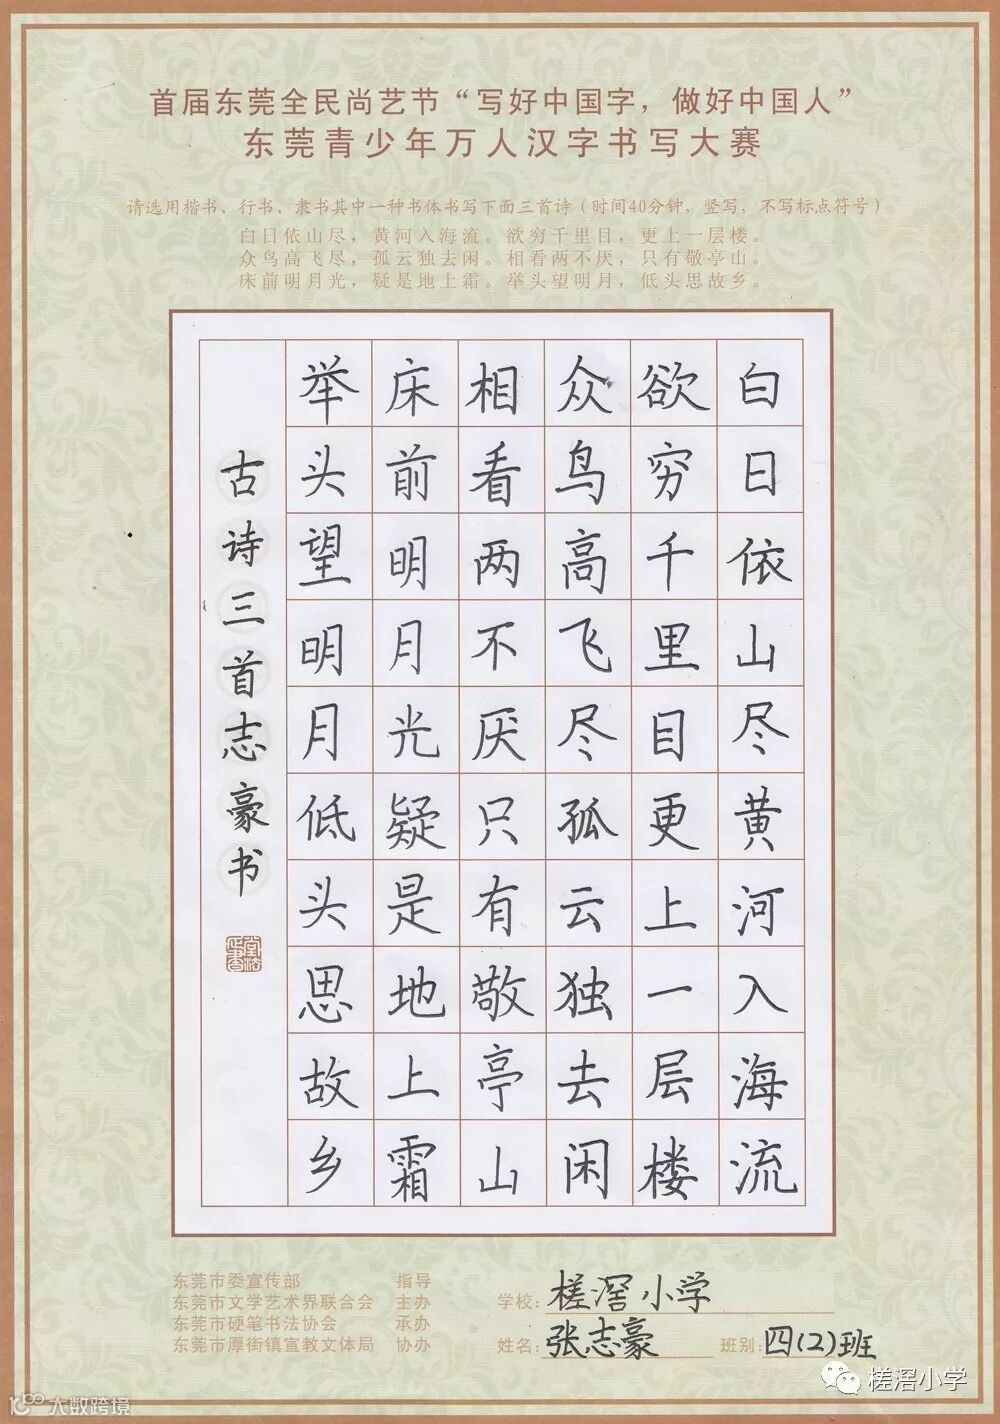 首届东莞全民尚艺节“写好中国字，做好中国人”
东莞青少年万人汉字书写大赛
请选用楷书、行书、隶书其中一种书体书写下面三首诗（时间40分钟，竖写，不写标点符号）
白日依山尽，黄河入海流。欲穷千里目，更上一层楼。
众鸟高飞尽，孤云独去闲。相看两不厌，只有敬亭山。
床前明月光，疑是地上霜。举头望明月，低头思故乡。
白日依山尽黄河入海流
欲穷千里目更上一层楼
众鸟高飞尽孤云独去闲
相看两不厌只有敬亭山
床前明月光疑是地上霜
举头望明月低头思故乡
古诗三首志豪书
东莞市委宣传部 指导
东莞市文学艺术界联合会 主办
东莞市硬笔书法协会 承办
东莞市厚街镇宣教文体局 协办
学校：槎滘小学
姓名：张志豪 班别：四(2)班
槎滘小学
大数跨境